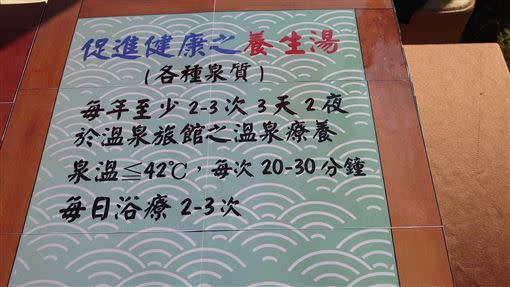 促進健康之養生湯
(各種泉質)
每年至少 2-3次 3天2夜
於溫泉旅館之溫泉療養
泉溫≦42℃，每次 20-30分鐘
每日浴療 2-3次